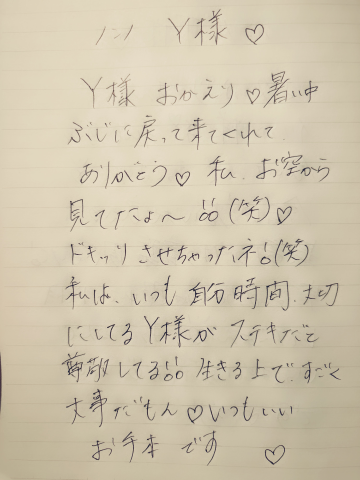 Y様 ♡
Y様 おかえり♡暑い中
ぶじに戻って来てくれて
ありがとう♡ 私、お空から
見てたよ〜 (笑)♡
ドキッりさせちゃったネ (笑)
私は、いつも 自分時間、大切
にしてるY様が ステキだと
尊敬してる 生きる上で、すごく
大事だもん♡いつもいい
お手本 です ♡